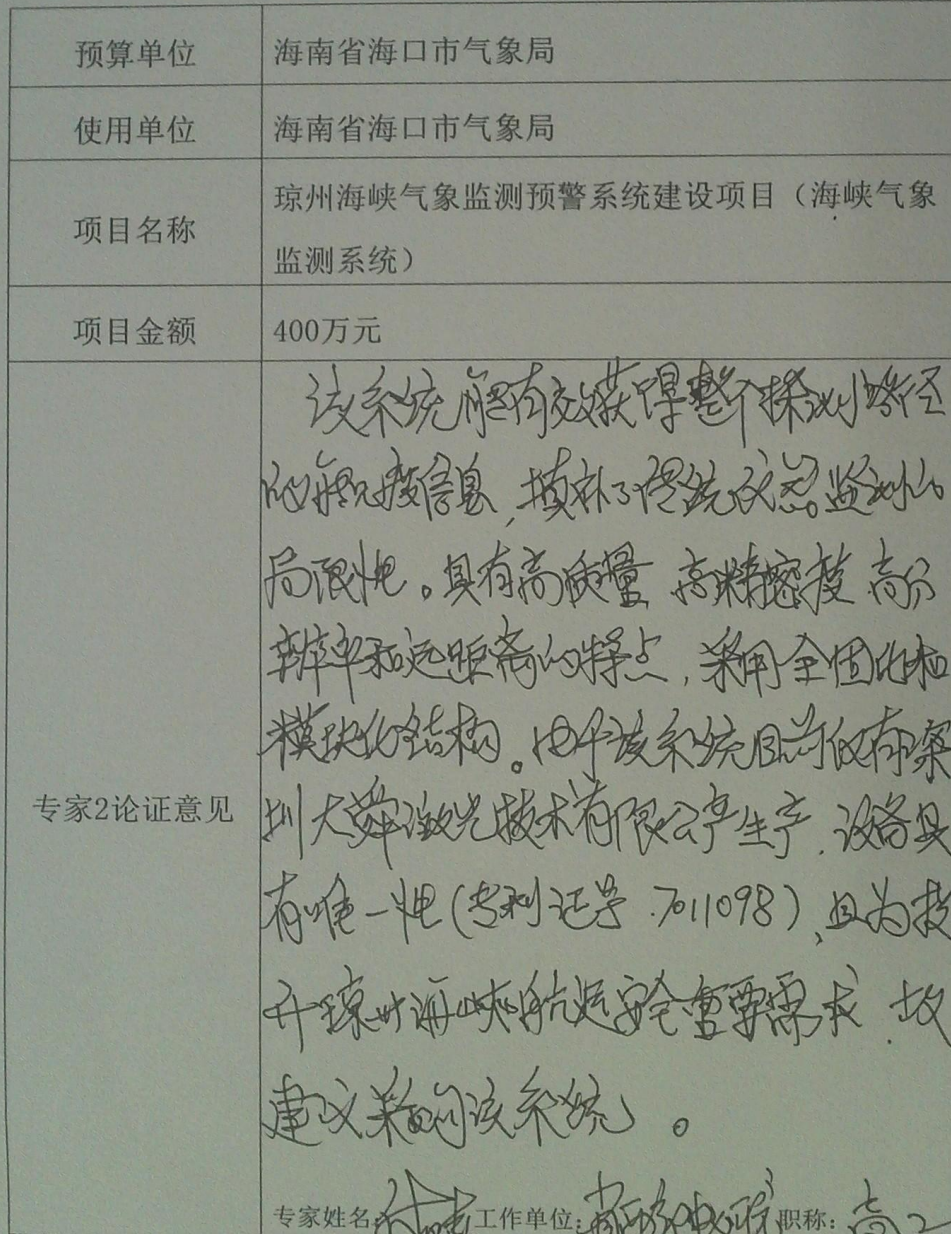 预算单位 海南省海口市气象局
使用单位 海南省海口市气象局
项目名称 琼州海峡气象监测预警系统建设项目（海峡气象
监测系统）
项目金额 400万元
专家2论证意见
该系统能有效获得整个探测路径
的能见度信息，填补了传统能见监测的
局限性。具有高质量 高精密度 高分
辨率和远距离的特点，采用全固化和
模块化结构。由于该系统目前仅有深
圳大舜激光技术有限公司生产，设备具
有唯一性(专利证号.7011098)，且为提
升琼州海峡航运安全重要需求，故
建议采购该系统。
专家姓名： 工作单位： 职称：高工